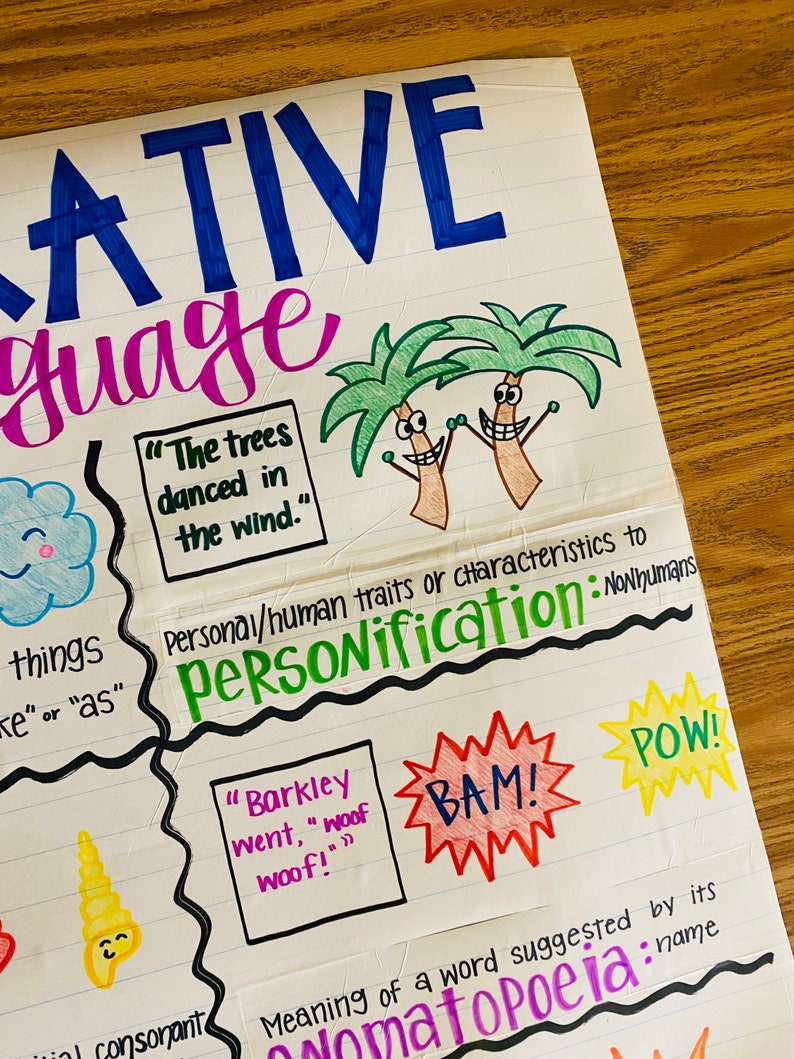 ATIVE
guage
"The trees
danced in
the wind."
Personal/human traits or characteristics to
personification: Nonhumans
things
"as"
or
"Barkley
went, "woof
woof!""
BAM!
POW!
Meaning of a word suggested by its
onomatopoeia: name
consonant